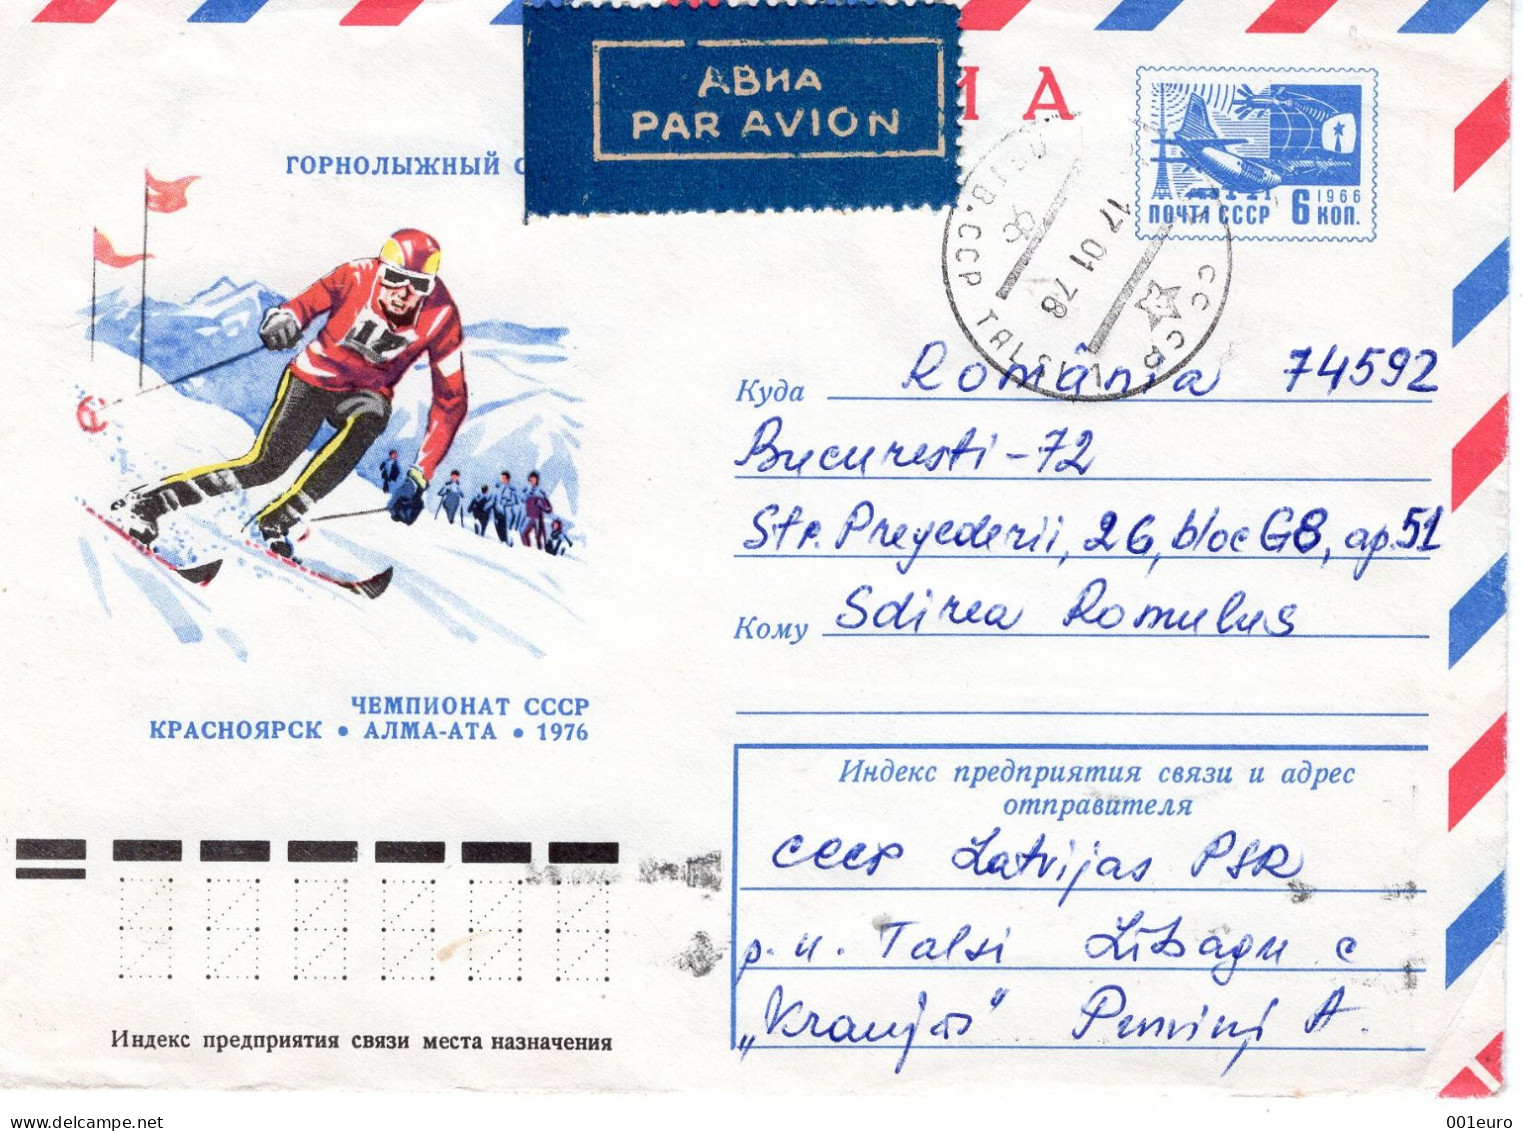 АВИА
PAR AVION
ИА
ГОРНОЛЫЖНЫЙ С
ПОЧТА СССР 6 КОП.
1966
СССР
TALSI
17 01 78
17
ЧЕМПИОНАТ СССР
КРАСНОЯРСК • АЛМА-АТА • 1976
Куда România 74592
Bucuresti-72
Str. Preyederii, 26, bloc G8, ap. 51
Кому Sdirea Romulus
Индекс предприятия связи и адрес
отправителя
СССР Latvijas PSR
р-н. Talsi Lībagu c
"Kraujas" A.
Индекс предприятия связи места назначения
www.delcampe.net
001euro